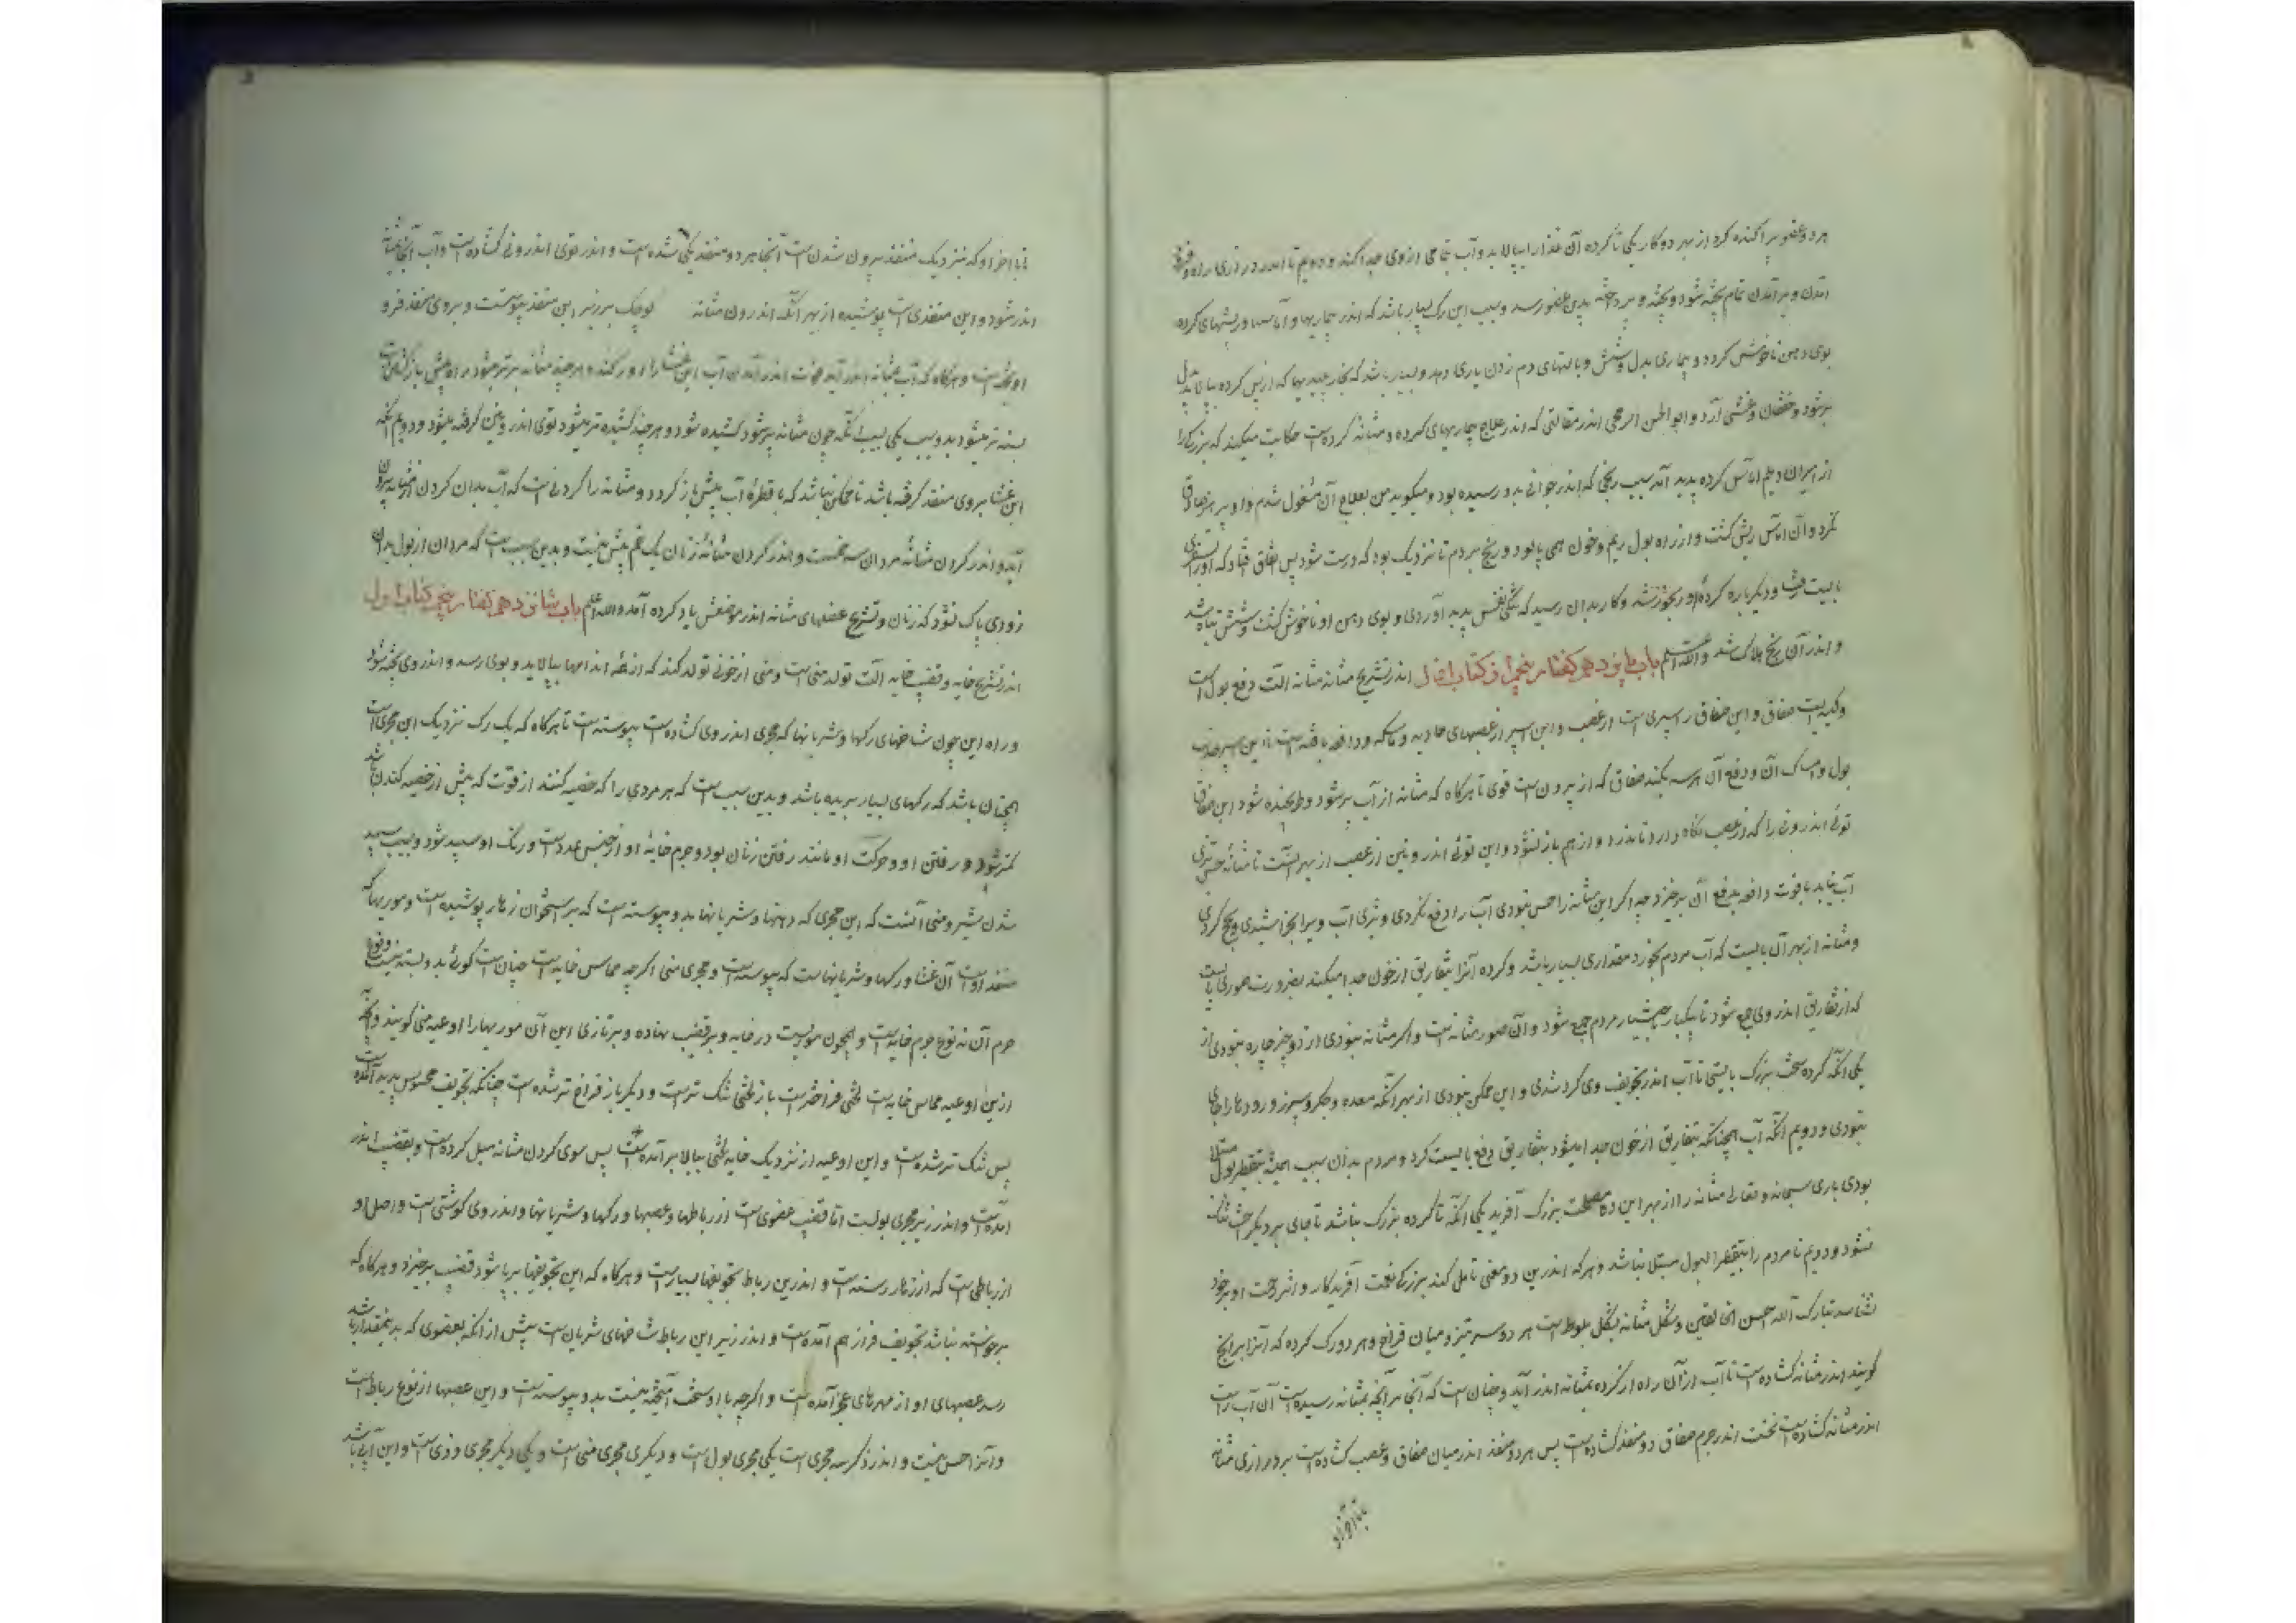 هر دو عضو پراکنده کرد از بهر دو کار یکی تا گرده آن غذا را بپالاید و آب بتمامی از وی جدا کند و دویم تا اندر درازی راه و فرو
آمدن و برآمدن تمام پخته شود و پخته و پرداخته بدین عضو رسد و سبب این رک بسیار باشد که اندر بیماریها و آماسها و ریشهای گرده
بوی دهن ناخوش گردد و بیماری بدل و شش و بالتهای دم زدن باری دهد و بسیار باشد که بخار پلیدیها که از پس گرده بیالاید بدل
برشود و خفقان و غشی آرد و ابو الحسن الترنجی اندر مقالتی که اندر علاج بیماریهای گرده و مثانه کرده است حکایت میکند که بزرگی را
از امیران دیلم آماس گرده پدید آمد سبب رنجی که اندر جوانی بدو رسیده بود و میگوید من بعلاج آن مشغول شدم و او پرهیز
نکرد و آن آماس ریش گشت و از راه بول ریم و خون همی پالود و رنج بردم تا نزدیک بود که درست شود پس اتفاق افتاد که او را سفری
بایست رفت و دیگر باره گرده او رنجور شد و کار بدان رسید که تنگی نفس پدید آوردی و بوی دهن او ناخوش گشت و شش تباه شد
و اندر آن رنج هلاک شد والله اعلم باب پانزدهم گفتار پنجم از کتاب اول اندر تشریح مثانه مثانه آلت دفع بول است
و کیسه ایست صفاق و این صفاق را سپری است از عصب و این سپر از عصبهای جاذبه و ماسکه و دافعه بافته است تا این سپر جذب
بول و امساک آن و دفع آن هر سه بکند صفاق که از بیرون است قوی تا هرگاه که مثانه از آب پر شود و طرنجیده شود این صفاق
توئی اندرونی را که از عصب نگاه دارد تا ندرد و از هم باز نشود و این توئی اندرونین از عصب از بهر آنست تا مثانه حس تیزی
آب بیابد با قوت دافعه بدفع آن برخیزد چه اگر این مثانه را حس نبودی آب را دفع نکردی و تیزی آب ویرا بخراشیدی و رنجه کردی
و مثانه از بهر آن بایست که آب مردم بخورد مقداری بسیار باشد و گرده آنرا بتفاریق از خون جدا میکند بضرورت حوضی بایست
که از تفاریق اندر وی جمع شود تا بیکبار باختیار مردم جمع شود و آن حوض مثانه است و اگر مثانه نبودی از دو چیز چاره نبودی از
یکی آنکه گرده سخت بزرگ بایستی تا آب اندر تجویف وی گرد شدی و این ممکن نبودی از بهر آنکه معده و جگر و سپرز و رودها را جای
نبودی و دویم آنکه آب همچنانکه بتفاریق از خون جدا میشود بتفاریق دفع بایست کرد و مردم بدان سبب همیشه بتقطیر بول مبتلا
بودی باری سبحانه و تعالی مثانه را از بهر این دو مصلحت بزرگ آفرید یکی آنکه تا گرده بزرگ نباشد تا جای بر دیگر احشا تنگ
نشود و دویم تا مردم را بتقطیر البول مبتلا نباشد و هر که اندرین دو معنی تامل کند بزرگی نعمت آفریدگار و اثر رحمت او بر خود
شناسد تبارک الله احسن الخالقین و شکل مثانه بشکل بلوط است هر دو سر تیز و میان فراخ و هر دو رک گرده که آنرا برابخ
گویند اندر مثانه گشاده است تا آب از آن راه از گرده بمثانه اندر آید و چنان است که آنجا هر آنچه بمثانه رسیده است آن آب راست
اندر مثانه گشاده است نخست اندر جرم صفاق دو منفذ گشاده است پس هر دو منفذ اندر میان صفاق و عصب گشاده است بر درازی مثانه
تا بآخر او که نزدیک منفذ بیرون شدن است آنجا هر دو منفذ یکی شده است و اندر توی اندرونی گشاده است و آب آنجا بمثانه
اندر شود و این منفذی است پوشیده از بهر آنکه اندرون مثانه کوچک بر زبر این منفذ پیوسته است و بر وی منفذ فرو
آویخته است و هرگاه که آب بمثانه اندر آید قوت اندر آمدن آب این غشا را دور کند و هر چند مثانه پرتر میشود راه پیش باز گشتن
بسته تر میشود بدو سبب یکی سبب آنکه چون مثانه پر شود کشیده شود و هر چند کشیده تر میشود توی اندرونین گرفته میشود و دویم آنکه
این غشا بر وی منفذ گرفته باشد تا ممکن نباشد که یا قطرهٔ آب پیش باز گردد و مثانه را گردنی است که آب بدان گردن از مثانه بیرون
آید و اندر گردن مثانهٔ مردان سه خم است و اندر گردن مثانهٔ زنان یک خم بیش نیست و بدین سبب است که مردان از بول بدان
زودی پاک نشود که زنان و تشریح عضلهای مثانه اندر موضعش یاد کرده آمد والله اعلم باب شانزدهم گفتار پنجم کتاب اول
اندر تشریح خایه و قضیب خایه آلت تولد منی است و منی از خونی تولد کند که از همه اندامها بپالاید و بوی رسد و اندر وی پخته شود
و راه این چون شاخهای رگها و شریانها که مجری اندر وی گشاده است پیوسته است تا هرگاه که یک رک نزدیک این مجری است
همچنان باشد که رگهای بسیار بریده باشد و بدین سبب است که هر مردی را که خصیه کنند از قوت که پیش از خصیه کندن باشد
کمتر شود و رفتن او و حرکت او مانند رفتن زنان بود و جرم خایهٔ او از جنس غدد است و رنگ او سپید شود و سبب سپید
شدن شیر و منی آنست که این مجری که دهنها و شریانها بدو پیوسته است که بر استخوان زهار پوشیده است و موریها که
منفذ او است آن غشا و رگها و شریانهاست که پیوسته است و مجری منی اگرچه مماس خایه است چنان است گوئی بدو بسته نیست و نوع
جرم آن نه نوع جرم خایه است و همچون موریست در خایه و بر قضیب نهاده و بتازی این آن موریها را اوعیه منی گویند و آنچه
ازین اوعیه مماس خایه است لختی فراختر است باز لختی تنگ تر است و دیگر باز فراخ تر شده است چنانکه تجویف محسوس پدید آمده است
پس تنگ تر شده است و این اوعیه از نزدیک خایه لختی ببالا برآمده است پس سوی گردن مثانه میل کرده است و بقضیب اندر
آمده است و اندر زیر مجری بولست اما قضیب عضوی است از رباطها و عصبها و رگها و شریانها و اندر وی گوشتی است و اصل او
از رباطی است که از زهار رسته است و اندرین رباط تجویفها بسیار است و هرگاه که این تجویفها پر باد شود قضیب برخیزد و هرگاه که
برخواسته نباشد تجویف فراز هم آمده است و اندر زیر این رباط شاخهای شریان است بیش از آنکه بعضوی که بدین مقدار باشد
رسد عصبهای او از مهرهای عجز آمده است و اگرچه با او سخت آمیخته نیست بدو پیوسته است و این عصبها از نوع رباط است
و آنرا حس نیست و اندر ذکر سه مجری است یکی مجری بول است و دیگری مجری منی است و یکی دیگر مجری وذی است و این آبی باشد